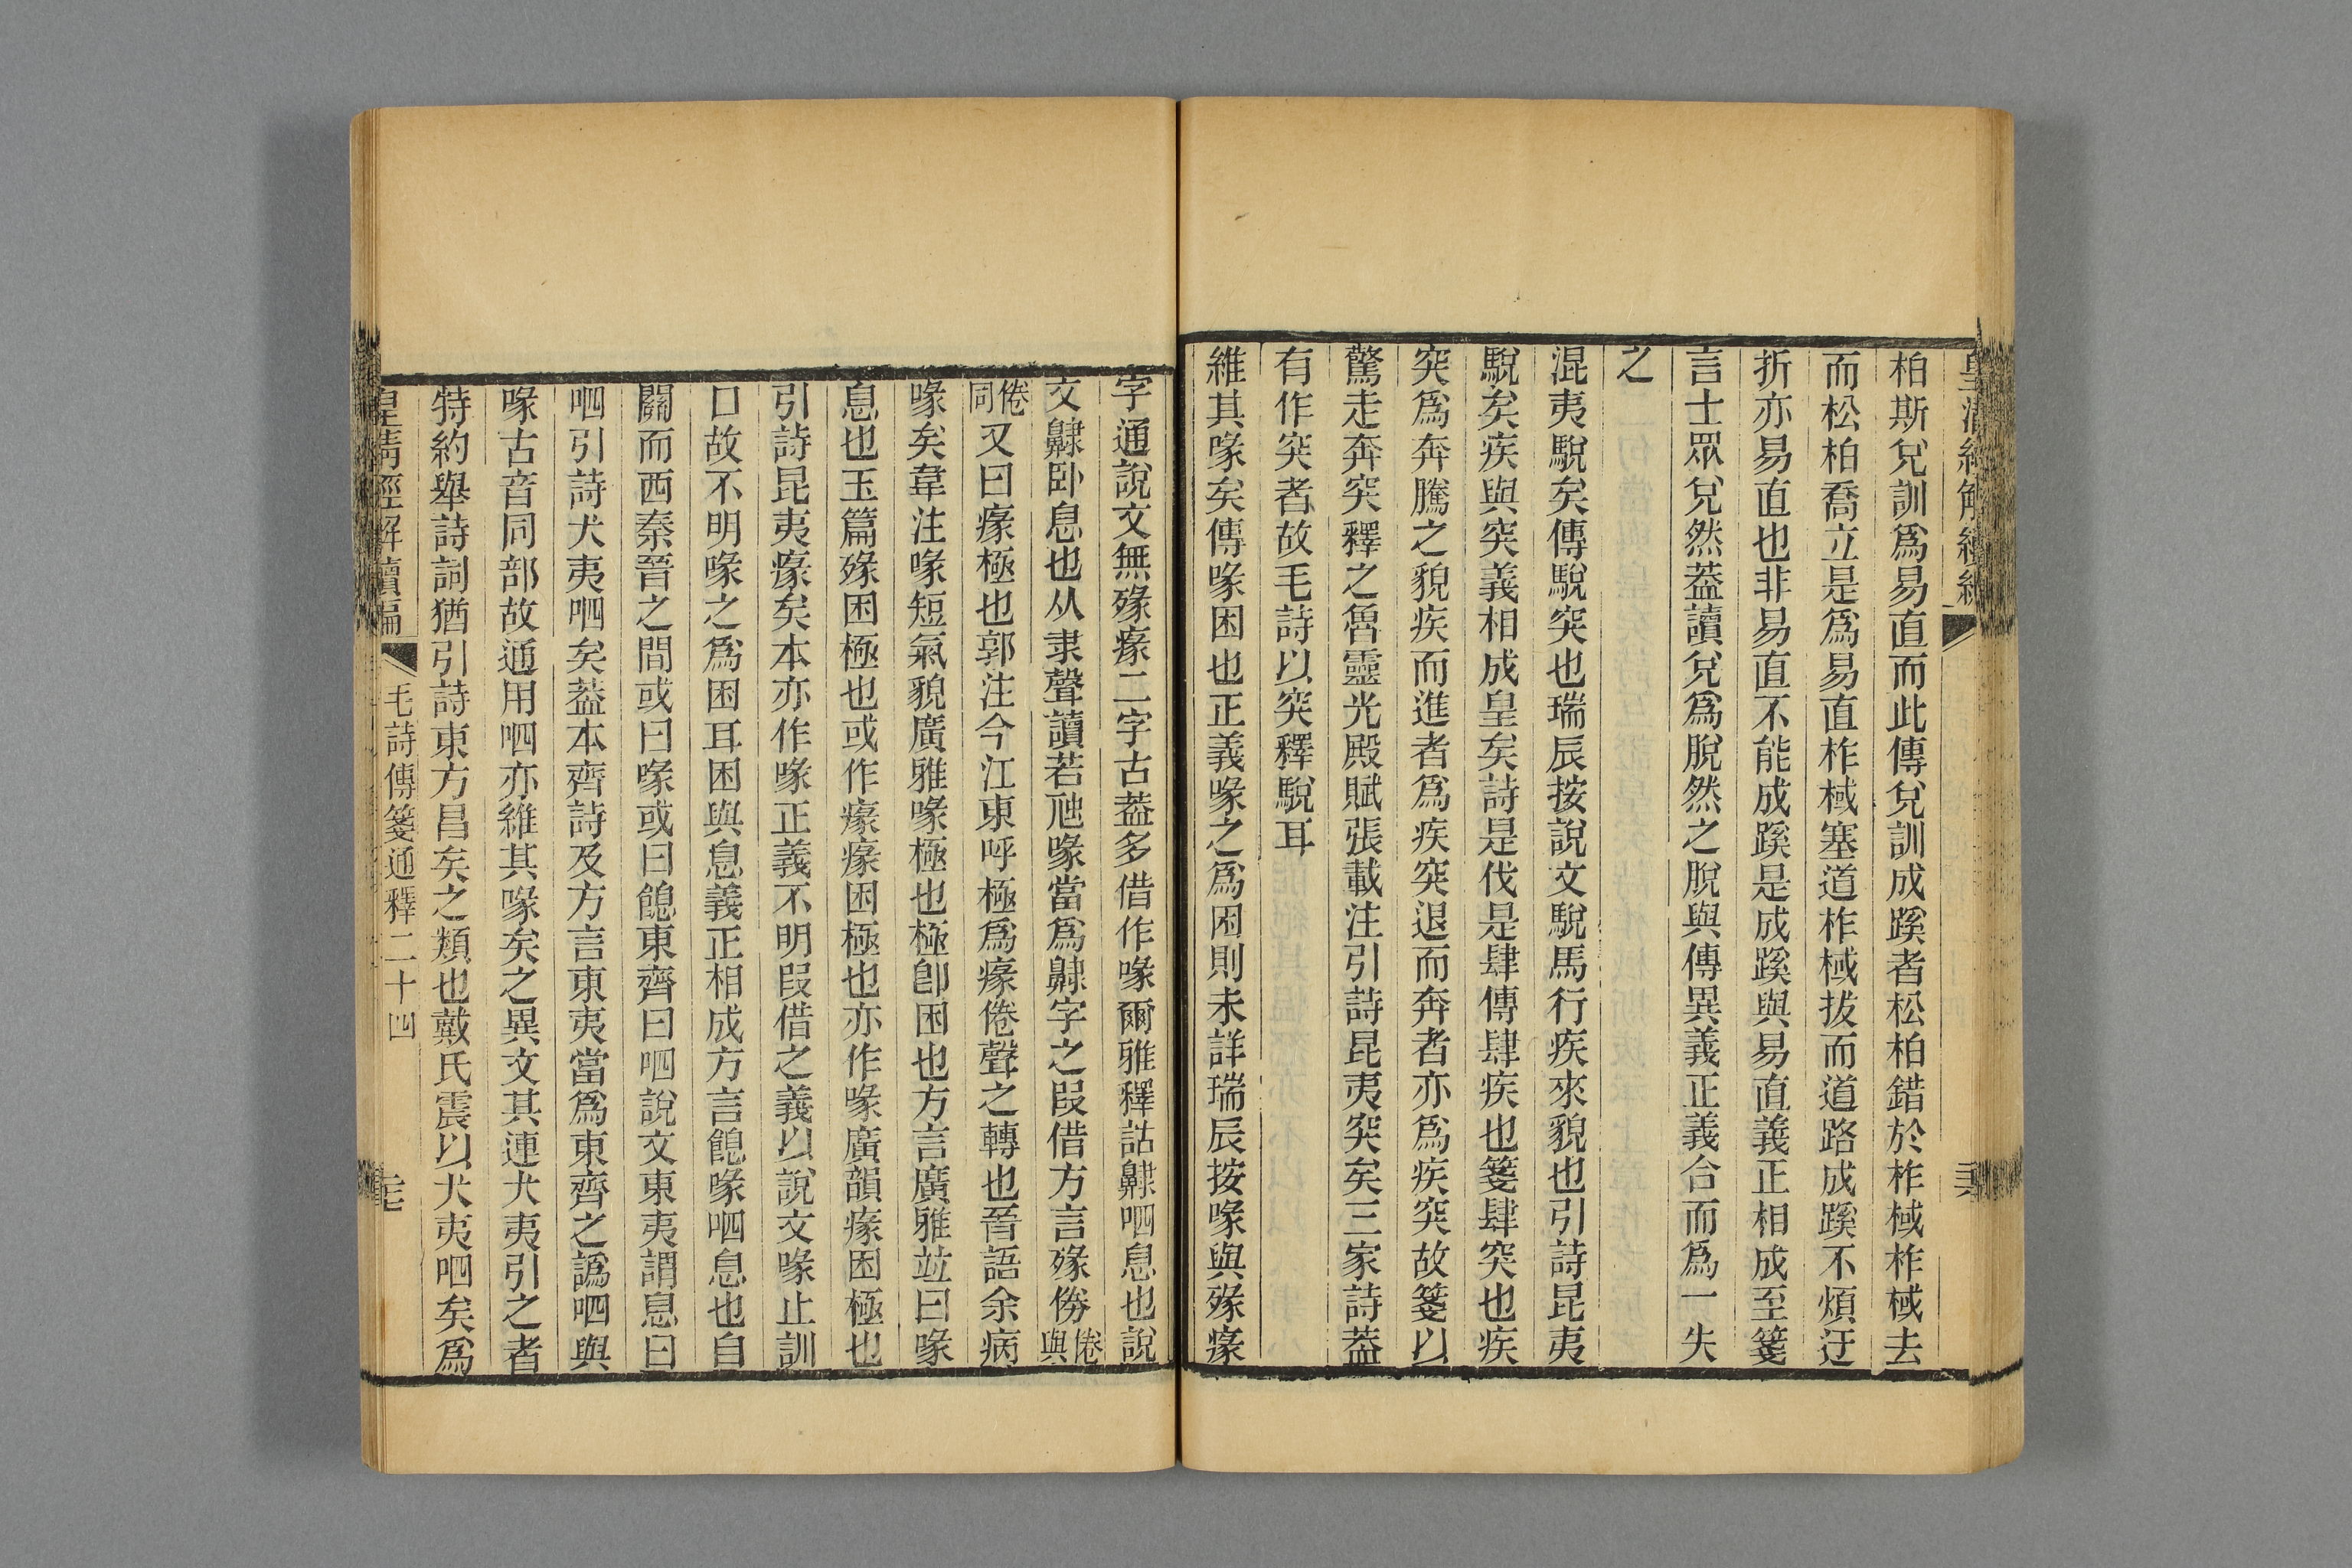 皇清經解續編
柏斯兌訓爲易直而此傳兌訓成蹊者松柏錯於柞棫柞棫去
而松柏喬立是爲易直柞棫塞道柞棫拔而道路成蹊不煩迂
折亦易直也非易直不能成蹊是成蹊與易直義正相成至箋
言士眾兌然葢讀兌爲脫然之脫與傳異義正義合而爲一失
之
混夷駾矣傳駾突也瑞辰按說文駾馬行疾來貌也引詩昆夷
駾矣疾與突義相成皇矣詩是伐是肆傳肆疾也箋肆突也疾
突爲奔騰之貌疾而進者爲疾突退而奔者亦爲疾突故箋以
驚走奔突釋之魯靈光殿賦張載注引詩昆夷突矣三家詩葢
有作突者故毛詩以突釋駾耳
維其喙矣傳喙困也正義喙之爲困則未詳瑞辰按喙與㱱瘃
字通說文無㱱瘃二字古葢多借作喙爾雅釋詁齂呬息也說
文齂臥息也从隶聲讀若虺喙當爲齂字之叚借方言㱱㑮倦與
倦同又曰瘃極也郭注今江東呼極爲瘃倦聲之轉也晉語余病
喙矣韋注喙短氣貌廣雅喙極也極卽困也方言廣雅竝曰喙
息也玉篇㱱困極也或作瘃瘃困極也亦作喙廣韻瘃困極也
引詩昆夷瘃矣本亦作喙正義不明叚借之義以說文喙止訓
口故不明喙之爲困耳困與息義正相成方言餽喙呬息也自
關而西秦晉之間或曰喙或曰餽東齊曰呬說文東夷謂息曰
呬引詩犬夷呬矣葢本齊詩及方言東夷當爲東齊之譌呬與
喙古音同部故通用呬亦維其喙矣之異文其連犬夷引之者
特約舉詩詞猶引詩東方昌矣之類也戴氏震以犬夷呬矣爲
皇清經解續編
毛詩傳箋通釋二十四